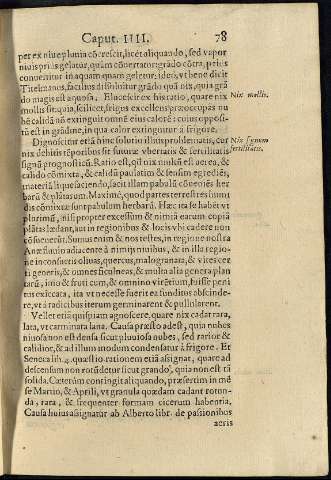 Caput. IIII. 78
per ex niue pluuia cōcrescit, licèt aliquādo, sed vapor
niuis prius gelatur, quàm cōuertatur: grādo cōtra, prius
conuertitur in aquam quam geletur: ideò, vt bene dicit
Titelmanus, faciliùs dissoluitur grādo quā nix, quia grā
do magis est aquosa. Elucescit ex his ratio, quare nix
mollis sit: quia, scilicet, frigus excellens præoccupās nu
bē calidā nō extinguit omnē eius calorē: cuius opposi-
tū est in grādine, in qua calor extinguitur à frigore.
Nix mollis.
Dignoscitur etiā hinc solutio illius problematis, cur
nix debitis tēporibus sit futuræ vbertatis & fertilitatis
signū prognosticū. Ratio est, qd nix cum sit aerea, &
calido cōmixta, & calidū pausatim & sensim egrediēs,
materiā liquefaciendo, facit illam pabulū cōueniēs her
barū & plātarum. Maximè, quod partes terrestres nimis
dis cōmixtæ sunt pabulum herbarū. Hæc ita se habēt vt
plurimū, nisi propter excessum & nimiā earum copiā
plātas lædant, aut in regionibus & locis vbi cadere non
cōsueuerūt. Sumus enim & nos testes, in regione nostra
Nix signum
fertilitatis.
fuisse peni
tus exiccata, ita vt necesse fuerit ea funditus abscinde-
re, vt à radicibus iterum germinarent & pullularent.
Vellet etiā quispiam agnoscere, quare nix cadat rara,
lata, vt carminata lana. Causa præsto adest, quia nubes
niuosa non est densa sicut pluuiosa nubes, sed rarior &
calidior, & ad illum modum condensatur à frigore. Et
Seneca lib.4. quæstio. rationem etiā assignat, quare ad
descensum non rotūdetur sicut grando, quia non est tā
solida. Cæterùm contingit aliquando, præsertim in mē
se Martio, & Aprili, vt granula quædam cadant roton-
da, rara, & frequenter formam cicerum habentia.
Causa huius assignatur ab Alberto libr. de passionibus
aeris